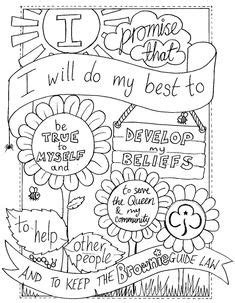 I
promise
that
I will do my best to
be
TRUE
to
MYSELF
and
DEVELOP
my
BELIEFS
to serve
the Queen
& my
community
to help
other
people
AND TO KEEP THE Brownie GUIDE LAW